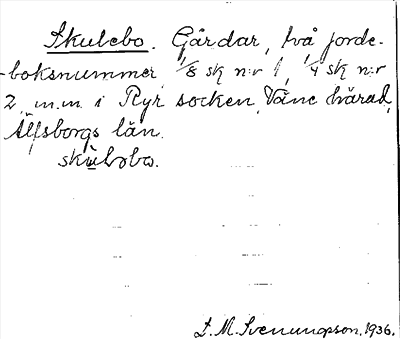 Skulebo. Gårdar, två jorde-
boksnummer, 1/8 sk n:r 1, 1/4 sk n:r
2, m.m. i Ryr socken, Väne härad,
Älfsborgs län.
skùlobo.
L. M. Svenungson. 1936.